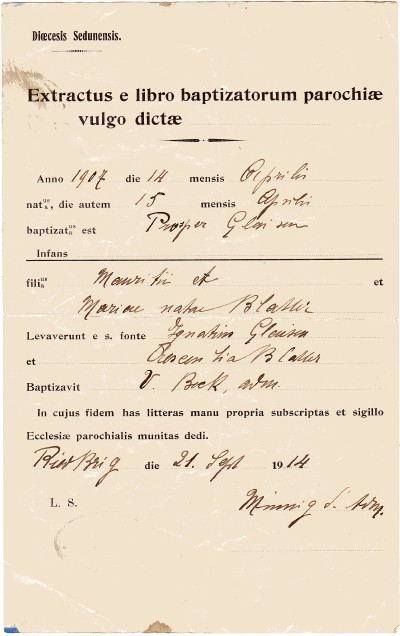 Diœcesis Sedunensis.
Extractus e libro baptizatorum parochiæ
vulgo dictæ
Anno 1907 die 14 mensis Aprilis
nat us/a, die autem 15 mensis Aprilis
baptizat us/a est Prosper
Infans
fili us/a Mauritii et et
Mariae natae Blatter
Levaverunt e s. fonte Ignatius
et Blatter
Baptizavit V. Bock, adm.
In cujus fidem has litteras manu propria subscriptas et sigillo
Ecclesiæ parochialis munitas dedi.
Ried Brig die 21. Sept 1914
L. S. Minnig S. Adm.